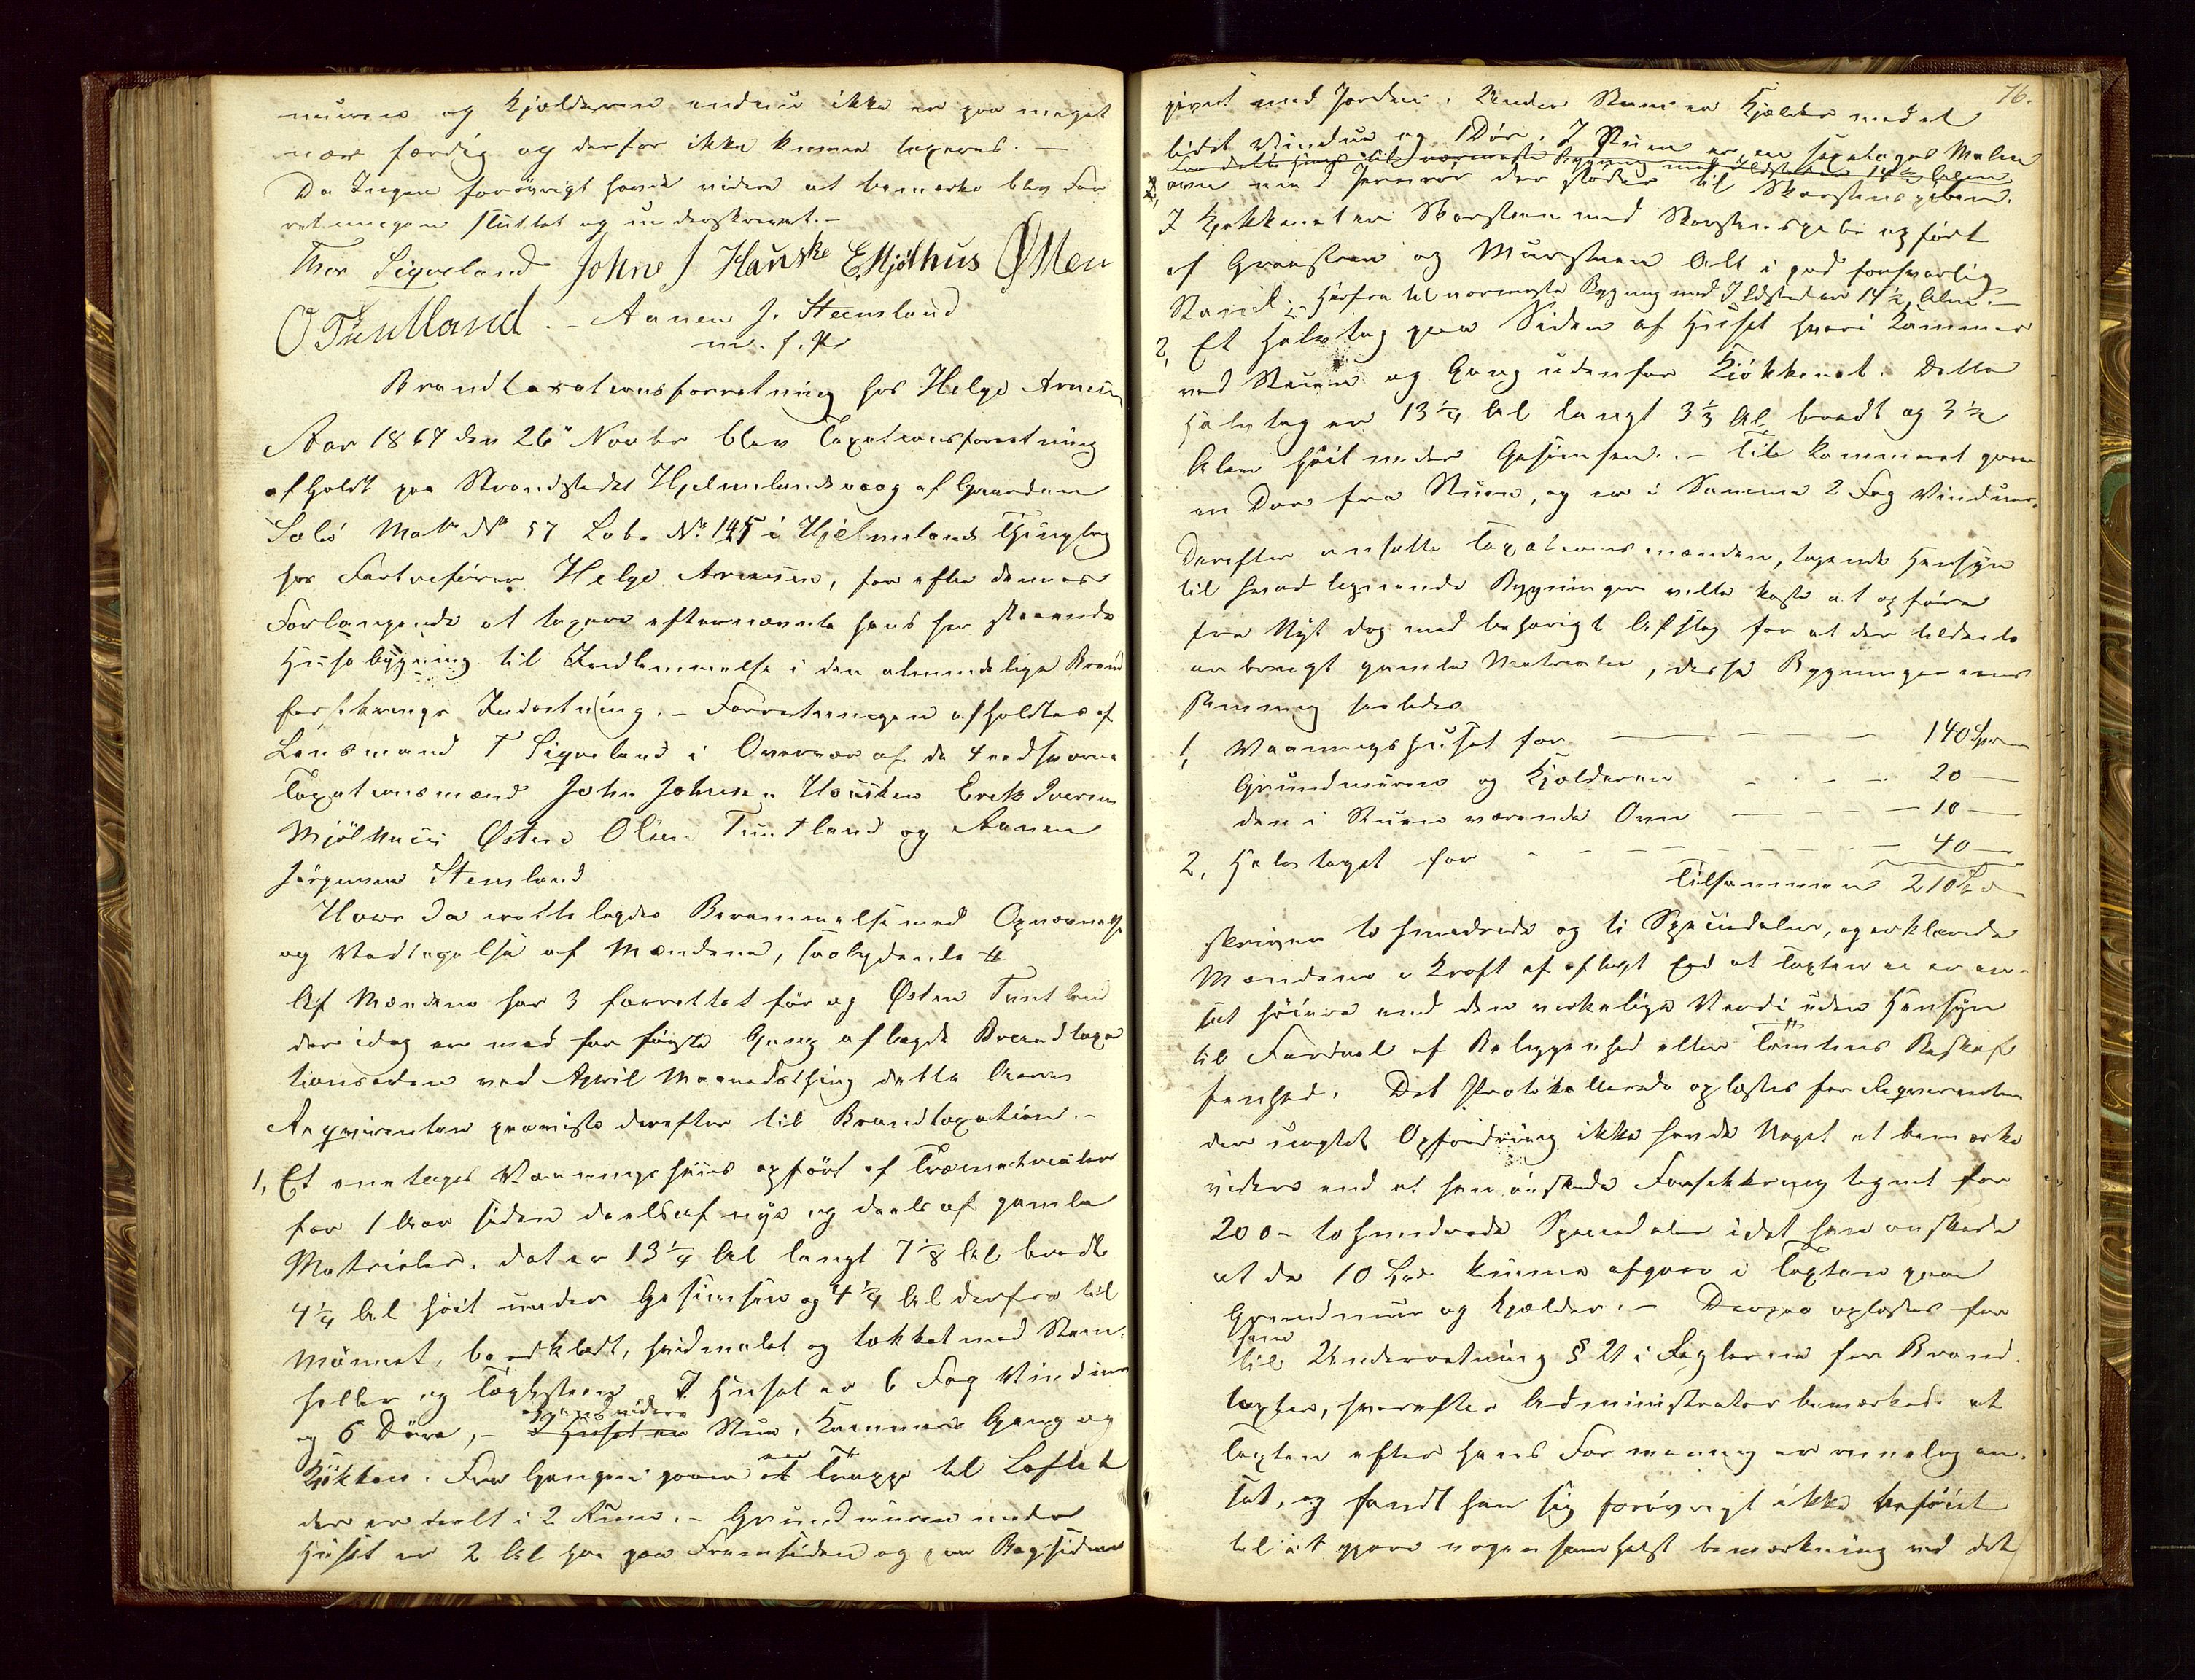 muren og Kjælderen endnu ikke er paa meget
nær færdig og derfor ikke kunne taxeres. —
Da Ingen forövrigt havde videre at bemærke blev For
retningen sluttet og underskrevet. —
Thor Siqveland John J Hauske E Mjölhus Ø Olsen
O Tuntland. — Aanen J. Steensland
m. f. P.
Brandtaxationsforretning hos Helge Arnesen
Aar 1867 den 26' Novbr blev Taxationsforretning
afholdt paa Strandstedet Hjelmelandsvaag af Gaarden
Matr No 57 Löbe No. 145 i Hjelmelands Thinglag
hos Helge Arnesen, for efter dennes
Forlangende at taxere efternævnte hans her staaende
Huusebygning til Indlemmelse i den almindelige Brand
forsikrings Indretning. — Forretningen afholdtes af
Lensmand T Siqveland i Overvær af de 4 edsvorne
Taxationsmænd John Johnsen Hausken Erik Iversen
Mjölhuus Østen Olsen Tuntland og Aanen
Jörgensen Stensland
Hvor da rettelagdes Berammelse med Opnævnelse
og Vedtagelse af Mændene, saalydende #
Af Mændene har 3 forrettet för og Østen Tuntland
der idag er med for förste Gang aflagde Brandtaxa
tionseden ved April Maanedsthing dette Aar
Reqvirenten paaviste derefter til Brandtaxation. —
1, Et eenetages Vaaningshuus opfört af Træmaterialer
for 1 Aar siden deels af nye og deels af gamle
Materialer. det er 13 1/4 Al langt 7 1/8 Al bredt
4 1/4 Al höit under Gesimsen og 4 1/4 Al derfra til
Mönnet, bordklædt, hvidmalet og tækket med Steen-
heller og Taghsteen. I Huset er 6 Fag Vinduer
og 6 Döre, — I Huset er Stue, Kammer Gang og
Kjökken. Fra Gangen gaar en Trappe til Loftet
der er deelt i 2 Rum. — Grundmuren under
Huset er 2 Al höi paa Fremsiden og paa Bagsiden
76.
jevnt med Jorden. Under Stuen er Kjælder med et
lidet Vindue og 1 Dör. I Stuen er en Malm
Fra dette Huus til nærmeste Bygning med Ildsted er 14 1/2 Alen
ovn med Jernrör der stöder til Skorsteenspiben.
I Kjökkenet er Skorsteen med Skorsteenspibe opfört
af Graasteen og Muursteen Alt i god forsvarlig
Stand. — Herfra til nærmeste Bygning med Ildsted er 14 1/2 Alen. —
2, Et Halvtag paa Siden af Huset hvori Kammer
ved Stuen og Gang udenfor Kjökkenet. Dette
Halvtag er 13 1/4 Al langt 3 1/3 Al bredt og 3 1/2
Alen höit under Gesimsen. — Til Kammeret gaar
en Dør fra Stuen, og er i Samme 2 Fag Vinduer.
Derefter ansatte Taxationsmænden, tagende Hensyn
til hvad lignende Bygninger vilde koste at opföre
fra Nyt dog med behörigt Afslag for at der tildeels
er brugt gamle Materialer, disse Bygninger eens
stemmig saaledes
1, Vaaningshuset for — — — 140 Spd
Grundmuren og Kjælderen — — — 20 —
den i Stuen værende Ovn — — — 10 —
2, Halvtaget for — — — 40 —
Tilsammen 210 Spd
skriver to hundrede og ti Speciedaler, og erklærede
Mændene i Kraft af aflagt Eed at Taxten ei er an-
sat höiere end den virkelige Værdi uden Hensyn
til Fordeel af Beliggenhed eller Tomtens Beskaf
fenhed. Det Protokollerede oplæstes for Reqvirenten
der uagtet Opfordring ikke havde Noget at bemærke
videre end at han önskede Forsikkring tegnet for
200 — to hundrede Speciedaler idet han önskede
at de 10 Spd kunne afgaae i Taxten paa
Grundmur og Kjælder. — Derpaa oplæstes for
ham
til Underretning § 21 i Reglerne for Brand-
taxter, hvorefter Administrator bemærkede at
Taxten efter hans Formening er rimelig an-
sat, og fandt han sig forövrigt ikke beföiet
til at gjøre nogensomhelst bemærkning ved det